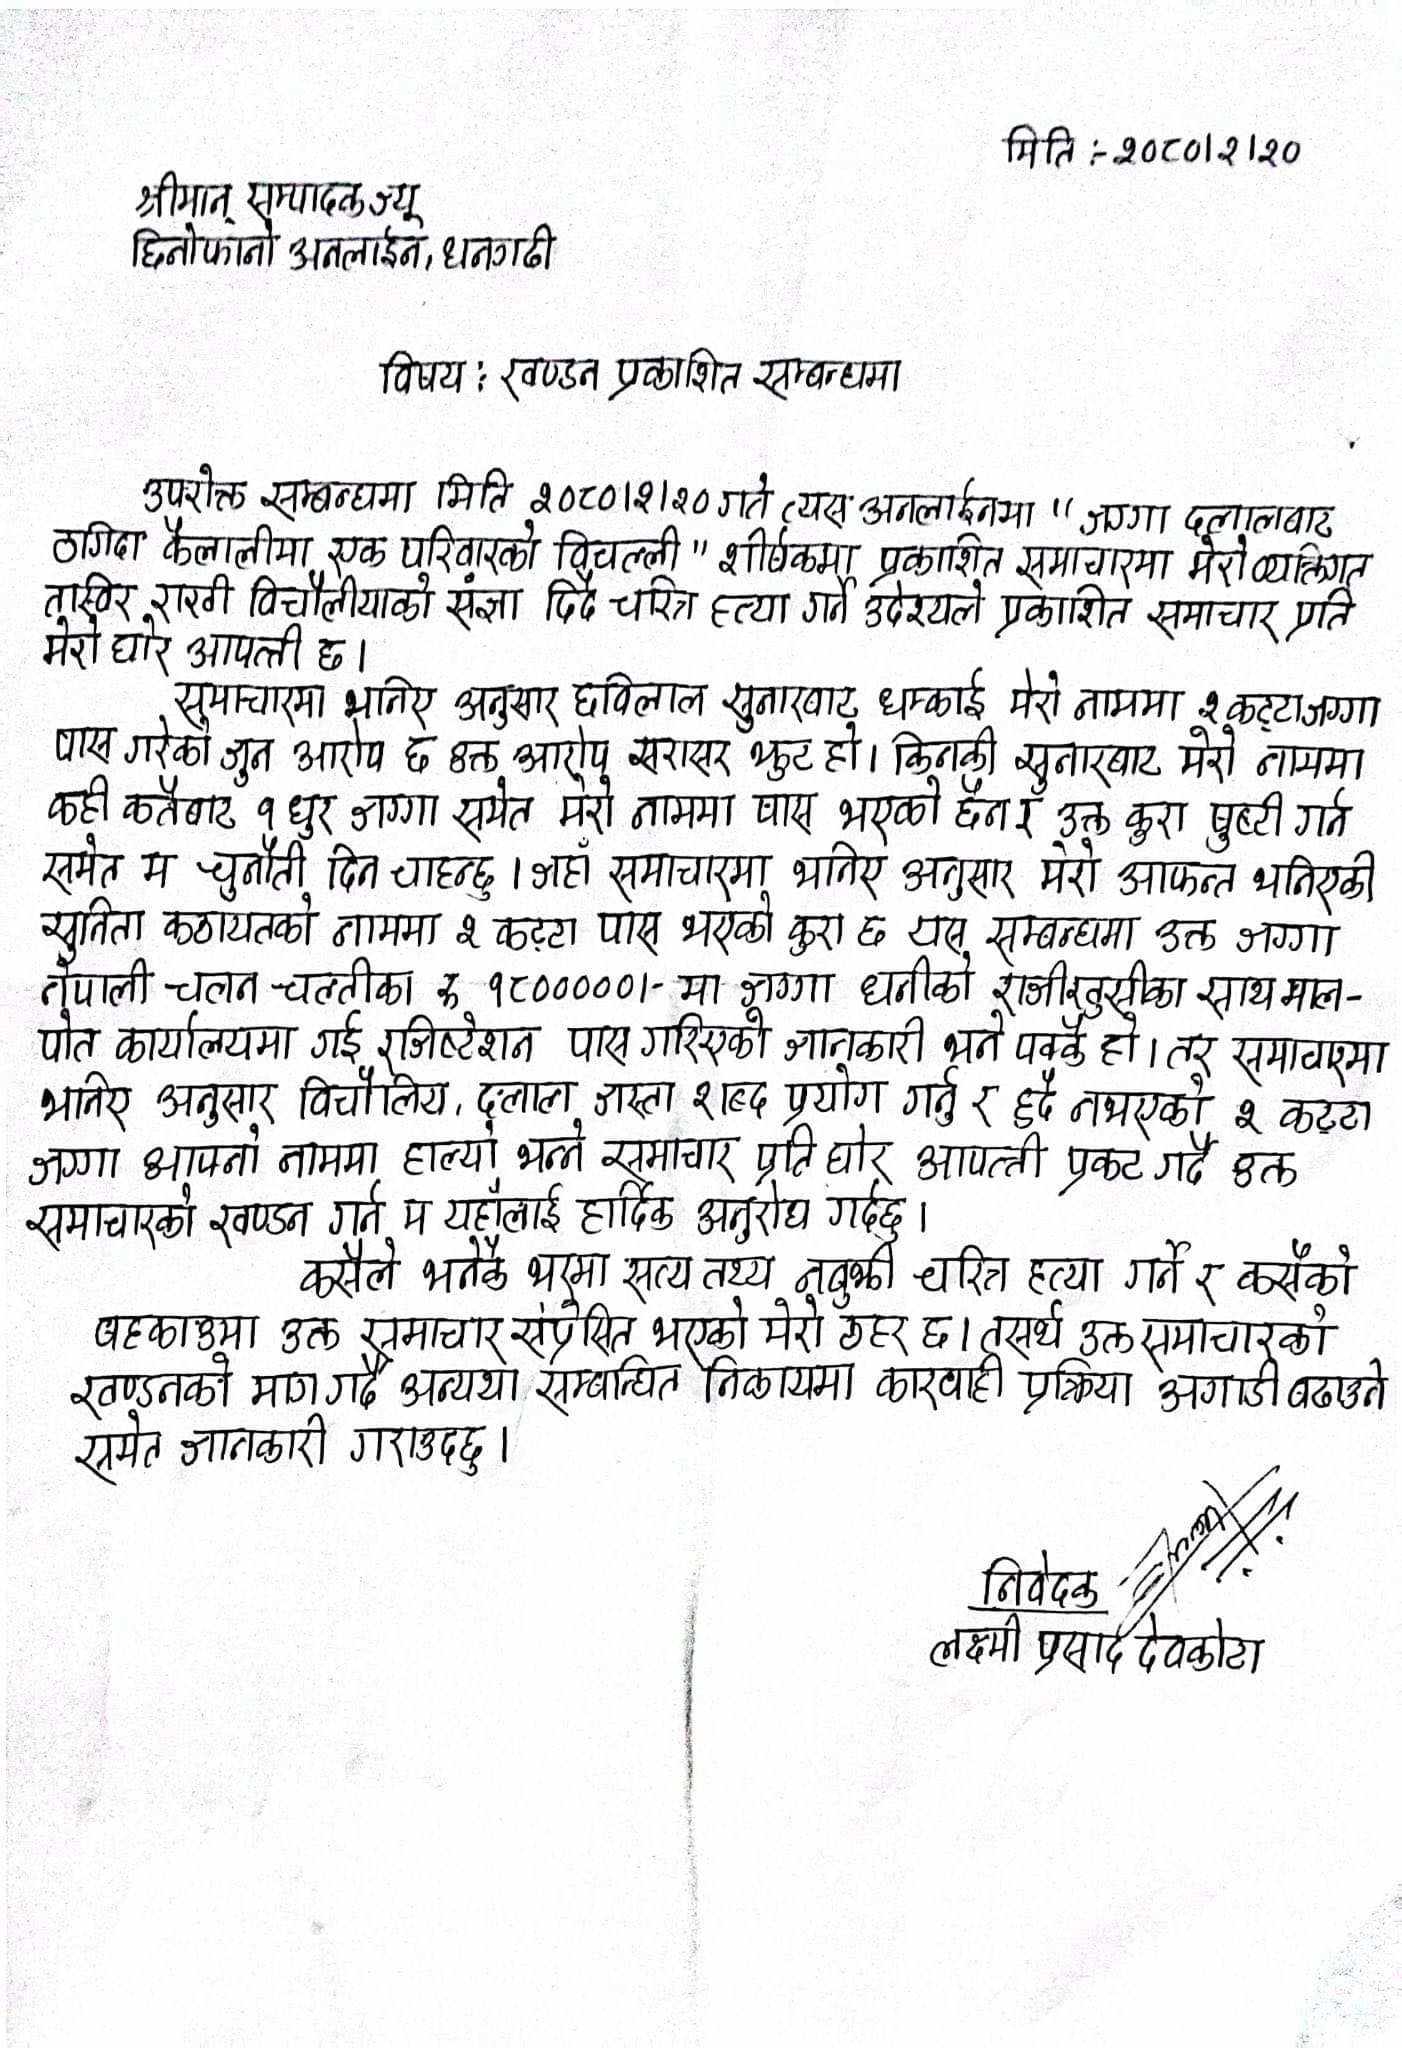 मिति :- २०८०।२।२०
श्रीमान् सम्पादक ज्यू
छिनोफानो अनलाईन, धनगढी
विषय : खण्डन प्रकाशित सम्बन्धमा
उपरोक्त सम्बन्धमा मिति २०८०।२।२० गते त्यस अनलाईनमा "जग्गा दलालबाट
ठगिदा कैलालीमा एक परिवारको विचल्ली" शीर्षकमा प्रकाशित समाचारमा मेरो व्यक्तिगत
तास्विर राखी विचौलीयाको संज्ञा दिदै चरित्र हत्या गर्ने उदेश्यले प्रकाशित समाचार प्रति
मेरो घोर आपत्ती छ।
समाचारमा भनिए अनुसार छविलाल सुनारबाट धम्काई मेरो नाममा २ कट्टा जग्गा
पास गरेको जुन आरोप छ उक्त आरोप सरासर झुट हो। किनकी सुनारबाट मेरो नाममा
कही कतैबाट १ धुर जग्गा समेत मेरो नाममा पास भएको छैन र उक्त कुरा पुष्टी गर्न
समेत म चुनौती दिन चाहन्छु। जहाँ समाचारमा भनिए अनुसार मेरो आफन्त भनिएकी
सुनिता कठायतको नाममा २ कट्टा पास भएको कुरा छ यस सम्बन्धमा उक्त जग्गा
नेपाली चलन चल्तीका रु १८०००००।- मा जग्गा धनीको राजीखुसीका साथ माल-
पोत कार्यालयमा गई रजिष्टेशन पास गरिएको जानकारी भने पक्कै हो। तर समाचारमा
भनिए अनुसार विचौलिय, दलाल जस्ता शब्द प्रयोग गर्नु र हुदै नभएको २ कट्टा
जग्गा आफ्नो नाममा हाल्यो भन्ने समाचार प्रति घोर आपत्ती प्रकट गर्दै उक्त
समाचारको खण्डन गर्न म यहाँलाई हार्दिक अनुरोध गर्दछु।
कसैले भनेकै भरमा सत्य तथ्य नबुझी चरित्र हत्या गर्ने र कसैको
बहकाउमा उक्त समाचार संप्रेसित भएको मेरो ठहर छ। तसर्थ उक्त समाचारको
खण्डनको माग गर्दै अन्यथा सम्बन्धित निकायमा कारवाही प्रक्रिया अगाडी बढाउने
समेत जानकारी गराउदछु।
निवेदक
लक्ष्मी प्रसाद देवकोटा